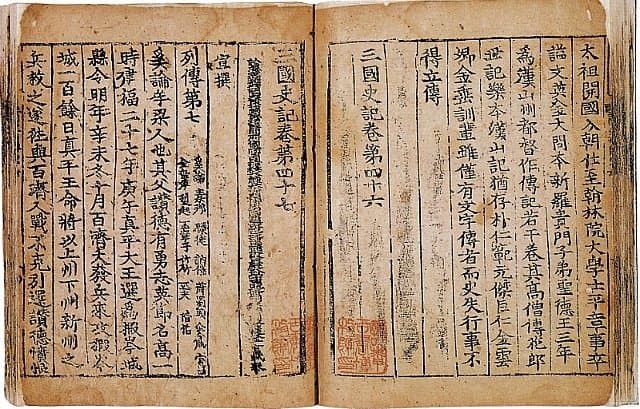 太祖開國入朝仕至翰林院大學士平章事卒
謚文英金大問本新羅貴門子弟聖德王三年
爲漢山州都督作傳記若干卷其高僧傳花郎
世記樂本漢山記猶存朴仁範元傑巨仁金雲
卿金垂訓輩雖僅有文字傳者而史失行事不
得立傳
三國史記卷第四十六
三國史記卷第四十七
宣撰
列傳第七
奚論牟梁人也其父讚德有勇志英節名高一
時建福二十七年庚午真平大王選爲椵岑城
縣令明年辛未冬十月百濟大發兵來攻椵岑
城一百餘日真平王命將以上州下州新州之
兵救之遂往與百濟人戰不克引還讚德憤恨